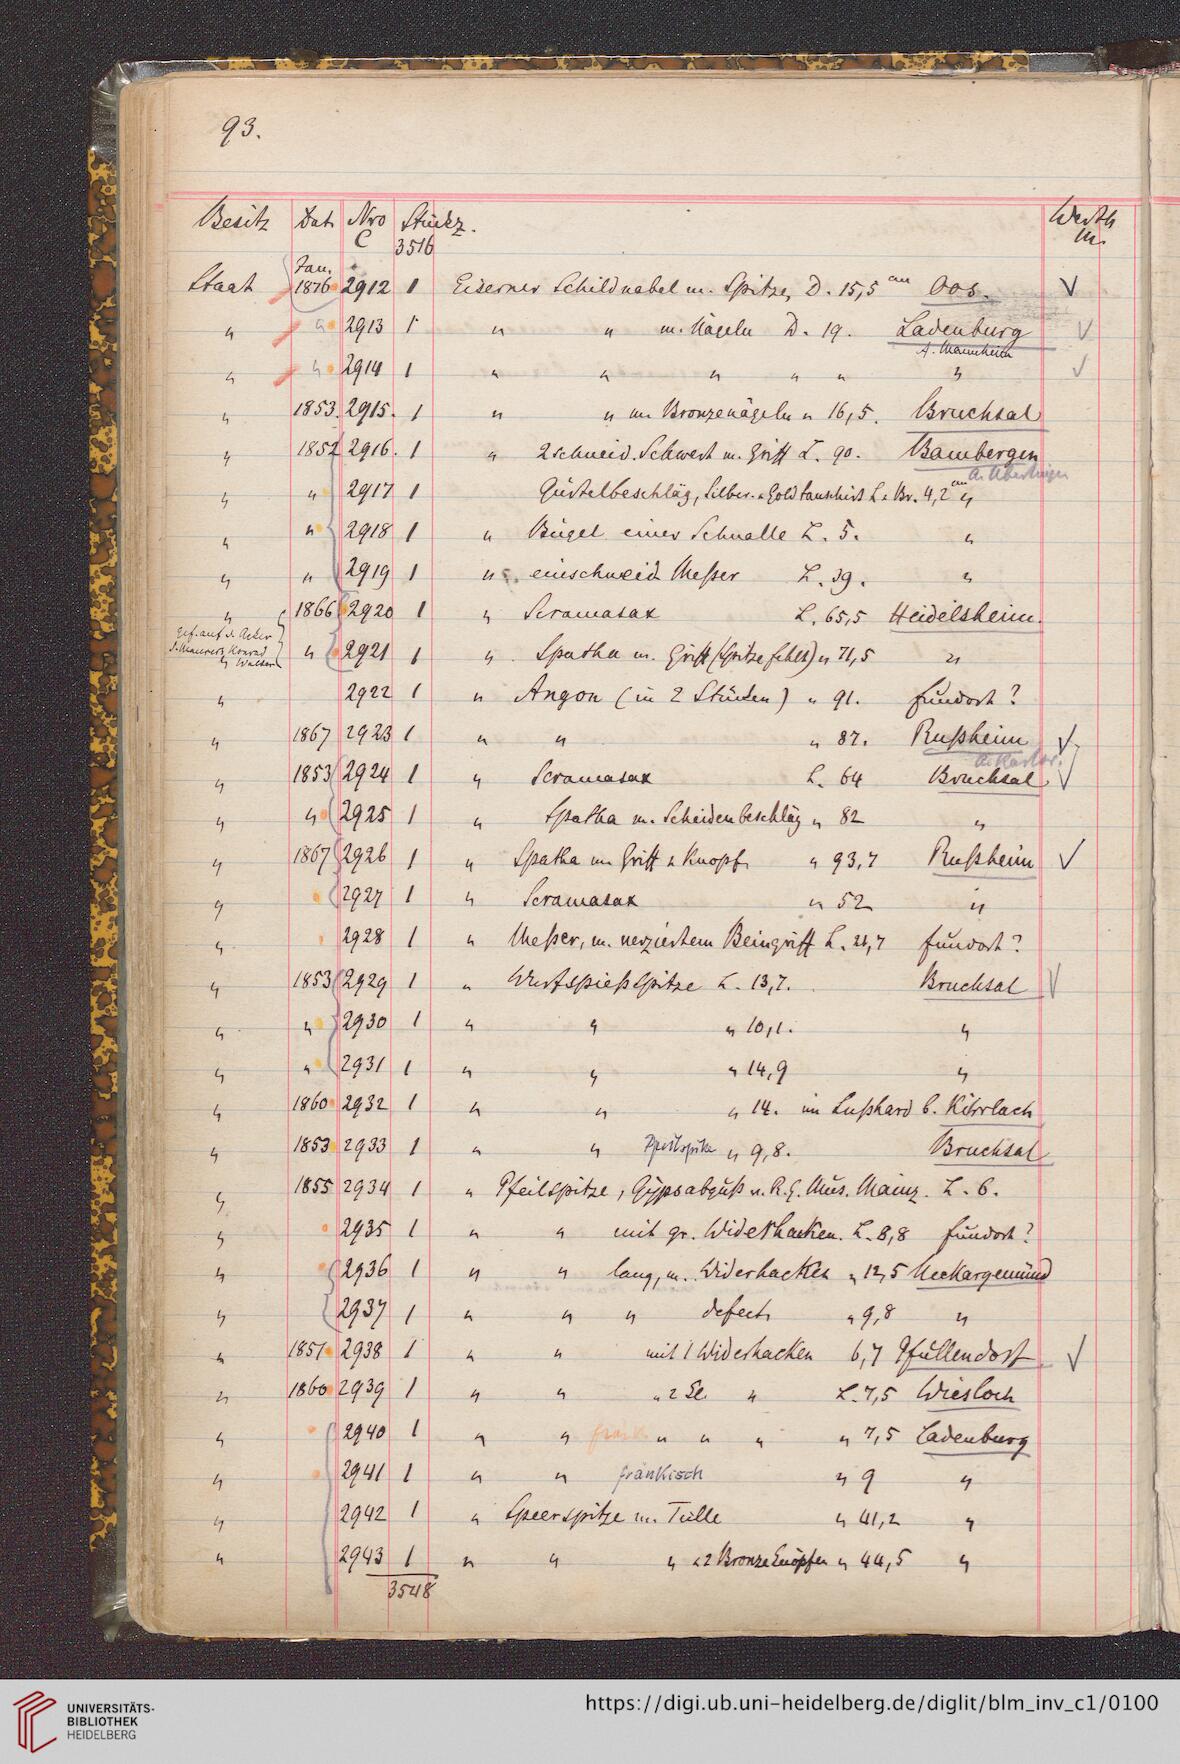 93.
Besitz Dat. Nro C Stückz. Werth M.
3516
Staat Jan. 1876 2912 1 Eiserner Schildnabel m. Spitze, D. 15,5 cm Oos.
" " 2913 1 " " m. Nägeln D. 19. Ladenburg
A. Mannheim
" " 2914 1 " " " " " "
" 1853. 2915. 1 " " m. Bronzenägeln " 16,5. Bruchsal
" 1852 2916. 1 " 2schneid. Schwert m. Griff L. 90. Bambergen
A. Überlingen
" " 2917 1 Gürtelbeschläg, Silber- u. Gold tauschirt L. u. Br. 4,2 cm "
" " 2918 1 " Bügel einer Schnalle L. 5. "
" " 2919 1 " einschneid Meßer L. 39. "
" 1866 2920 1 " Scramasax L. 65,5 Heidelsheim.
gef. auf d. Acker d. Maurers Konrad
" " 2921 1 " Spatha m. Griff (Spitze fehlt) " 71,5 "
" 2922 1 " Angon (in 2 Stücken) " 91. Fundort?
" 1867 2923 1 " " " 87. Rußheim
A. Karlsr.
" 1853 2924 1 " Scramasax L. 64 Bruchsal
" " 2925 1 " Spatha m. Scheidenbeschläg " 82 "
" 1867 2926 1 " Spatha m. Griff u. Knopf " 93,7 Rußheim
" 2927 1 " Scramasax " 52 "
" 2928 1 " Meßer, m. verziertem Beingriff L. 21,7 Fundort?
" 1853 2929 1 " Wurfspießspitze L. 13,7. Bruchsal
" " 2930 1 " " " 10,1. "
" " 2931 1 " " " 14,9 "
" 1860 2932 1 " " " 14. im Lußhard b. Kirrlach
" 1853 2933 1 " " Pfeilspitze " 9,8. Bruchsal
" 1855 2934 1 " Pfeilspitze, Gypsabguß v. R. G. Mus. Mainz. L. 6.
" 2935 1 " " mit gr. Widerhacken. L. 8,8 Fundort?
" 2936 1 " " lang, m. Widerhacken " 12,5 Neckargemünd
" 2937 1 " " " defect " 9,8 "
" 1851 2938 1 " " mit 1 Widerhacken 6,7 Pfullendorf
" 1860 2939 1 " " " 2 " L. 7,5 Wiesloch
" 2940 1 " " fränk " " " " 7,5 Ladenburg
" 2941 1 " " fränkisch " 9 "
" 2942 1 " Speerspitze m. Tülle " 41,2 "
" 2943 1 " " " u. 2 Bronzeknöpfen " 44,5 "
3548
UNIVERSITÄTS-
BIBLIOTHEK
HEIDELBERG
https://digi.ub.uni-heidelberg.de/diglit/blm_inv_c1/0100